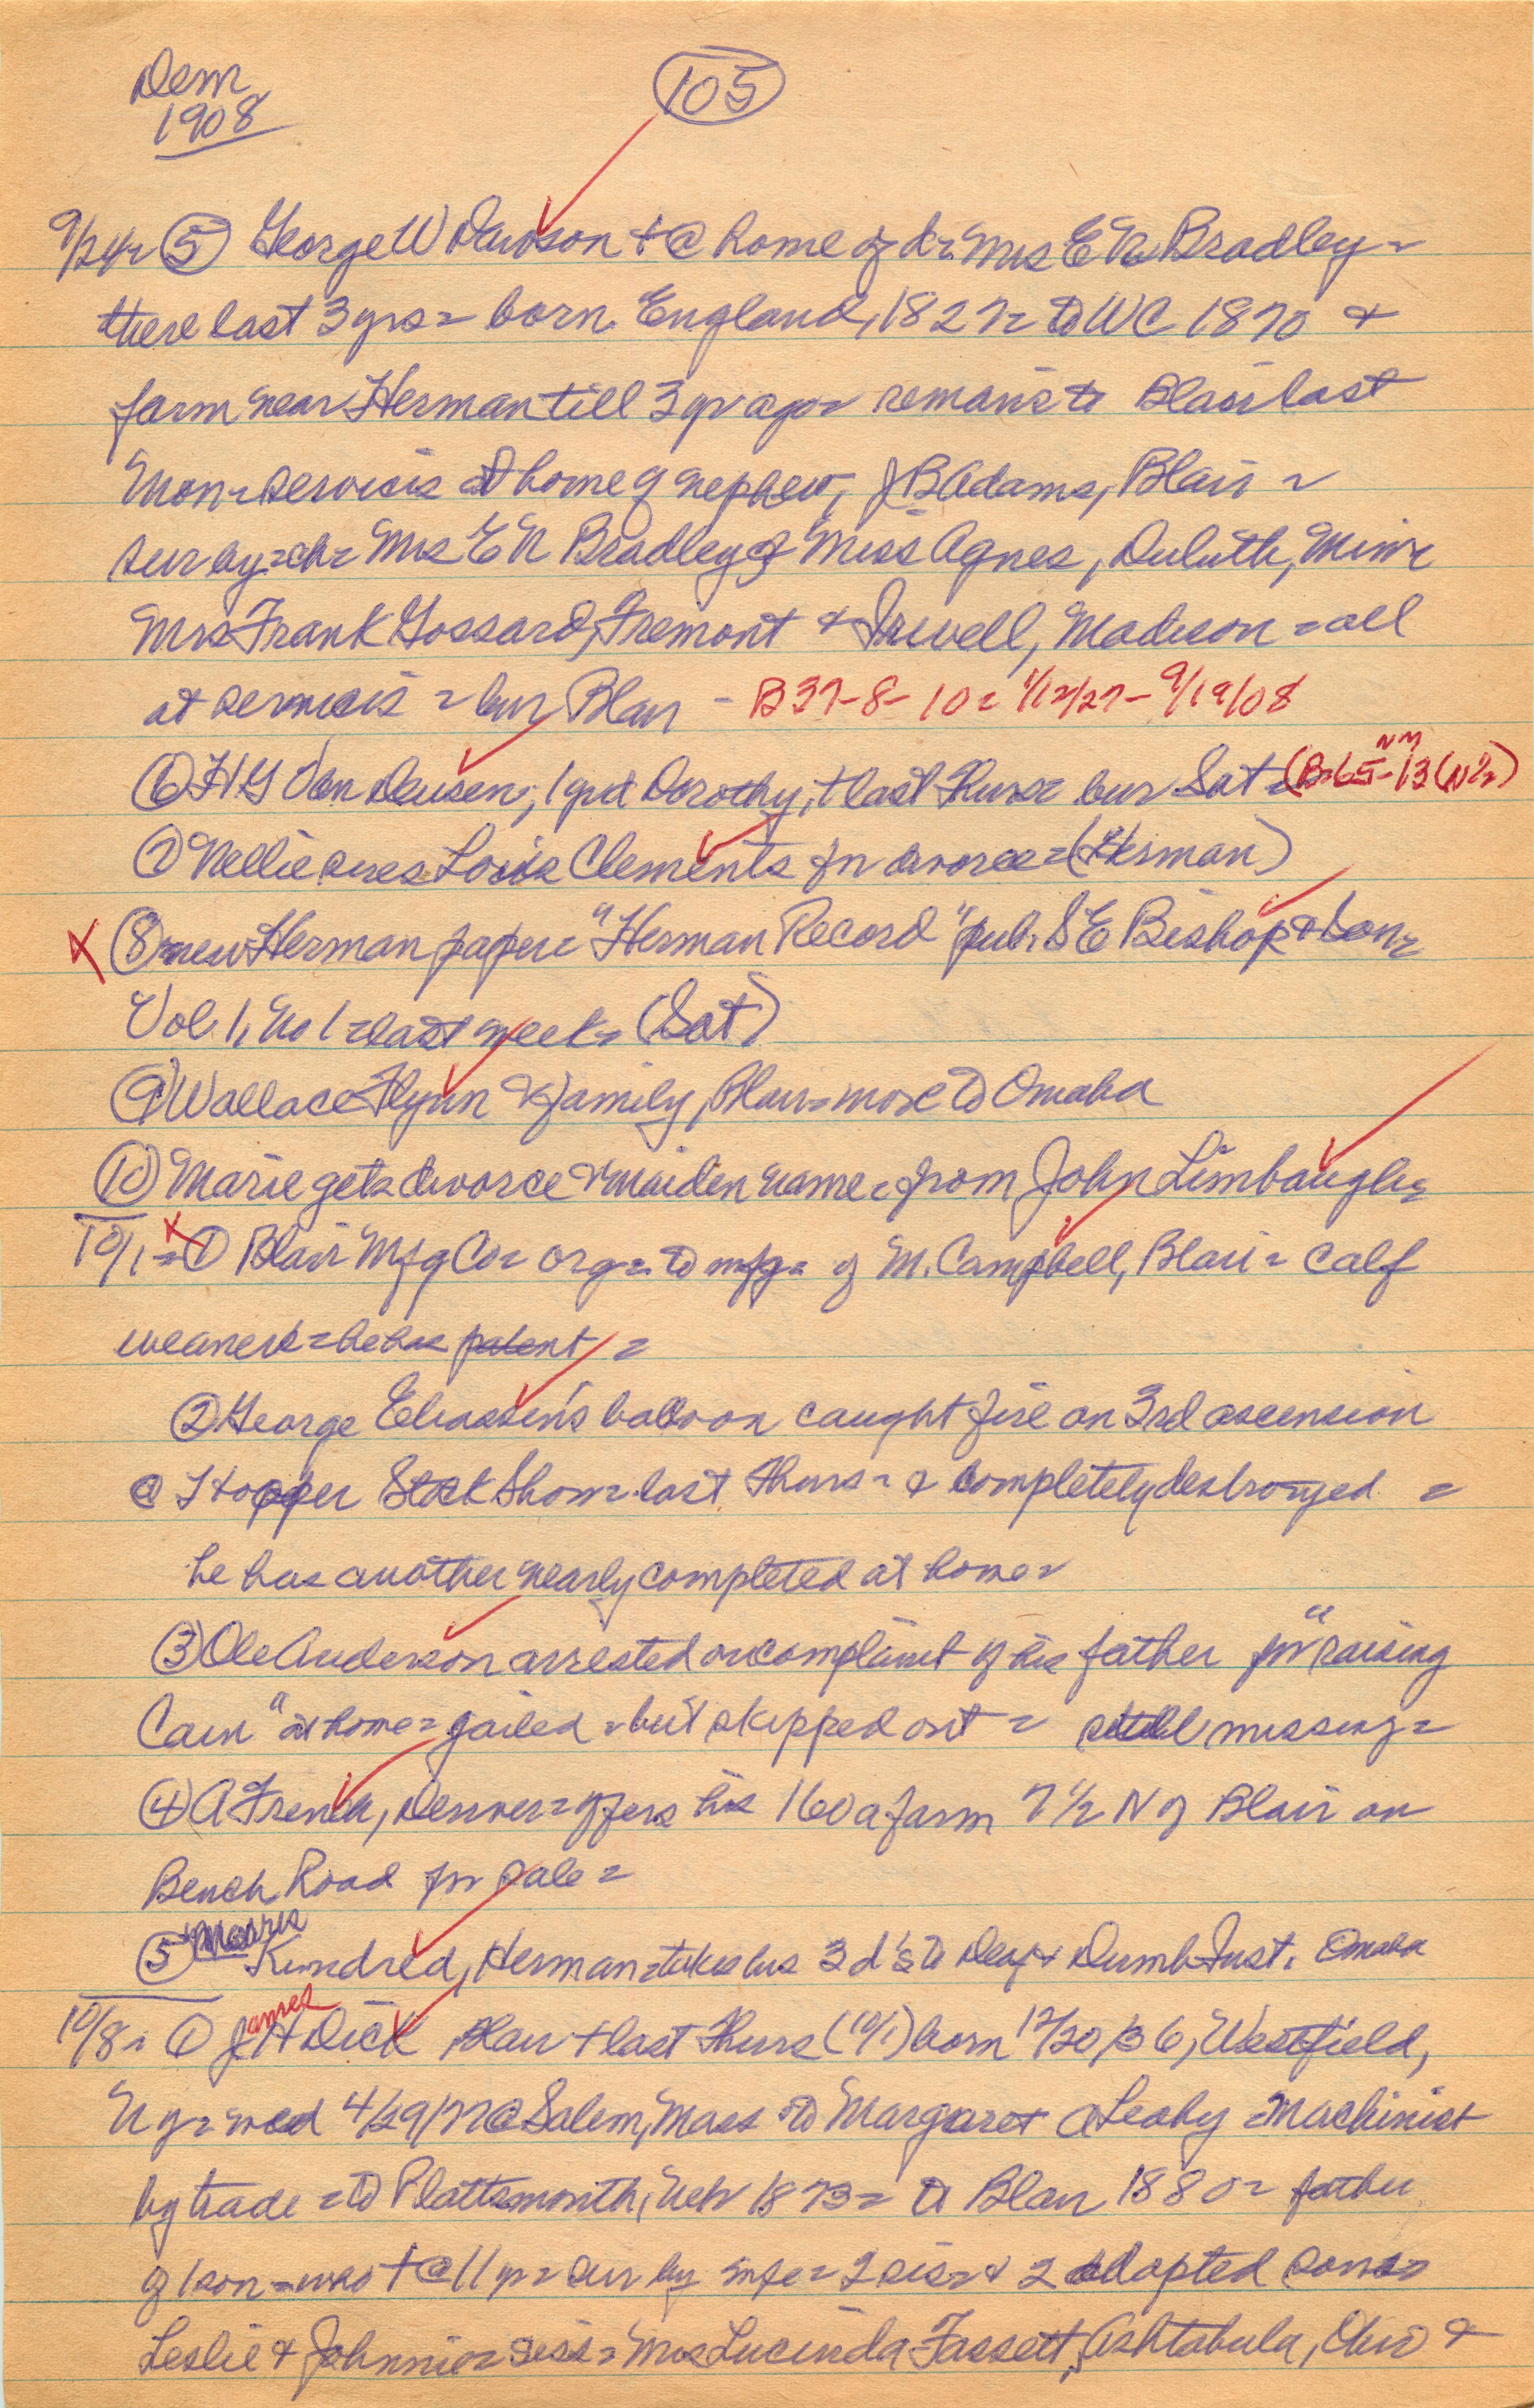 Dem
1908
105
9/24 = 5 George W Dawson + @ home of d = Mrs E N Bradley =
there last 3 yrs = born England, 1827 = to WC 1870 &
farm near Herman till 3 yr ago = remains to Blair last
Mon = services at home of nephew, J B Adams, Blair =
sur by = ch = Mrs E N Bradley & Miss Agnes, Duluth, Minn
Mrs Frank Gossard, Fremont & Irwell, Madison = all
at services = bur Blair - B37-8-10 = 1/12/27 - 9/19/08
6 H G Van Deusen, 1 yr d Dorothy, + last Thurs = bur Sat = (B-65-13 (N½) NM
7 Nellie sues Louis Clements for divorce = (Herman)
X 8 new Herman paper = "Herman Record" pub. S E Bishop & Son =
Vol. 1, No 1 = last week = (Sat)
9 Wallace Flynn & family, Blair = move to Omaha
10 Marie gets divorce & maiden name = from John Limbaugh =
10/1 = X 1 Blair Mfg Co = org = to mfg = of M. Campbell, Blair = calf
weaners = he has patent =
2 George Eliassen's balloon caught fire on 3rd ascension
@ Hooper Stock Show = last Thurs = & completely destroyed =
he has another nearly completed at home =
3 Ole Anderson arrested on complaint of his father for "raising
Cain" at home = jailed = but skipped out = still missing =
4 A French, Denver = offers his 160 a farm 7 ½ N of Blair on
Bench Road for sale =
5 Kindred, Herman = takes his 3 d's to Deaf & Dumb Inst. Omaha
10/8 = 1 James H Dick, Blair + last Thurs (10/1) born 12/20/36, Westfield,
N Y = wed 4/29/72 @ Salem, Mass to Margaret A Leahy = machinist
by trade = to Plattsmouth, Neb 1873 = to Blair 1880 = father
of 1 son = who + @ 11 yr = sur by wife = 2 sis = & 2 adopted sons =
Leslie & Johnnie = sis = Mrs Lucinda Fassett, Ashtabula, Ohio &